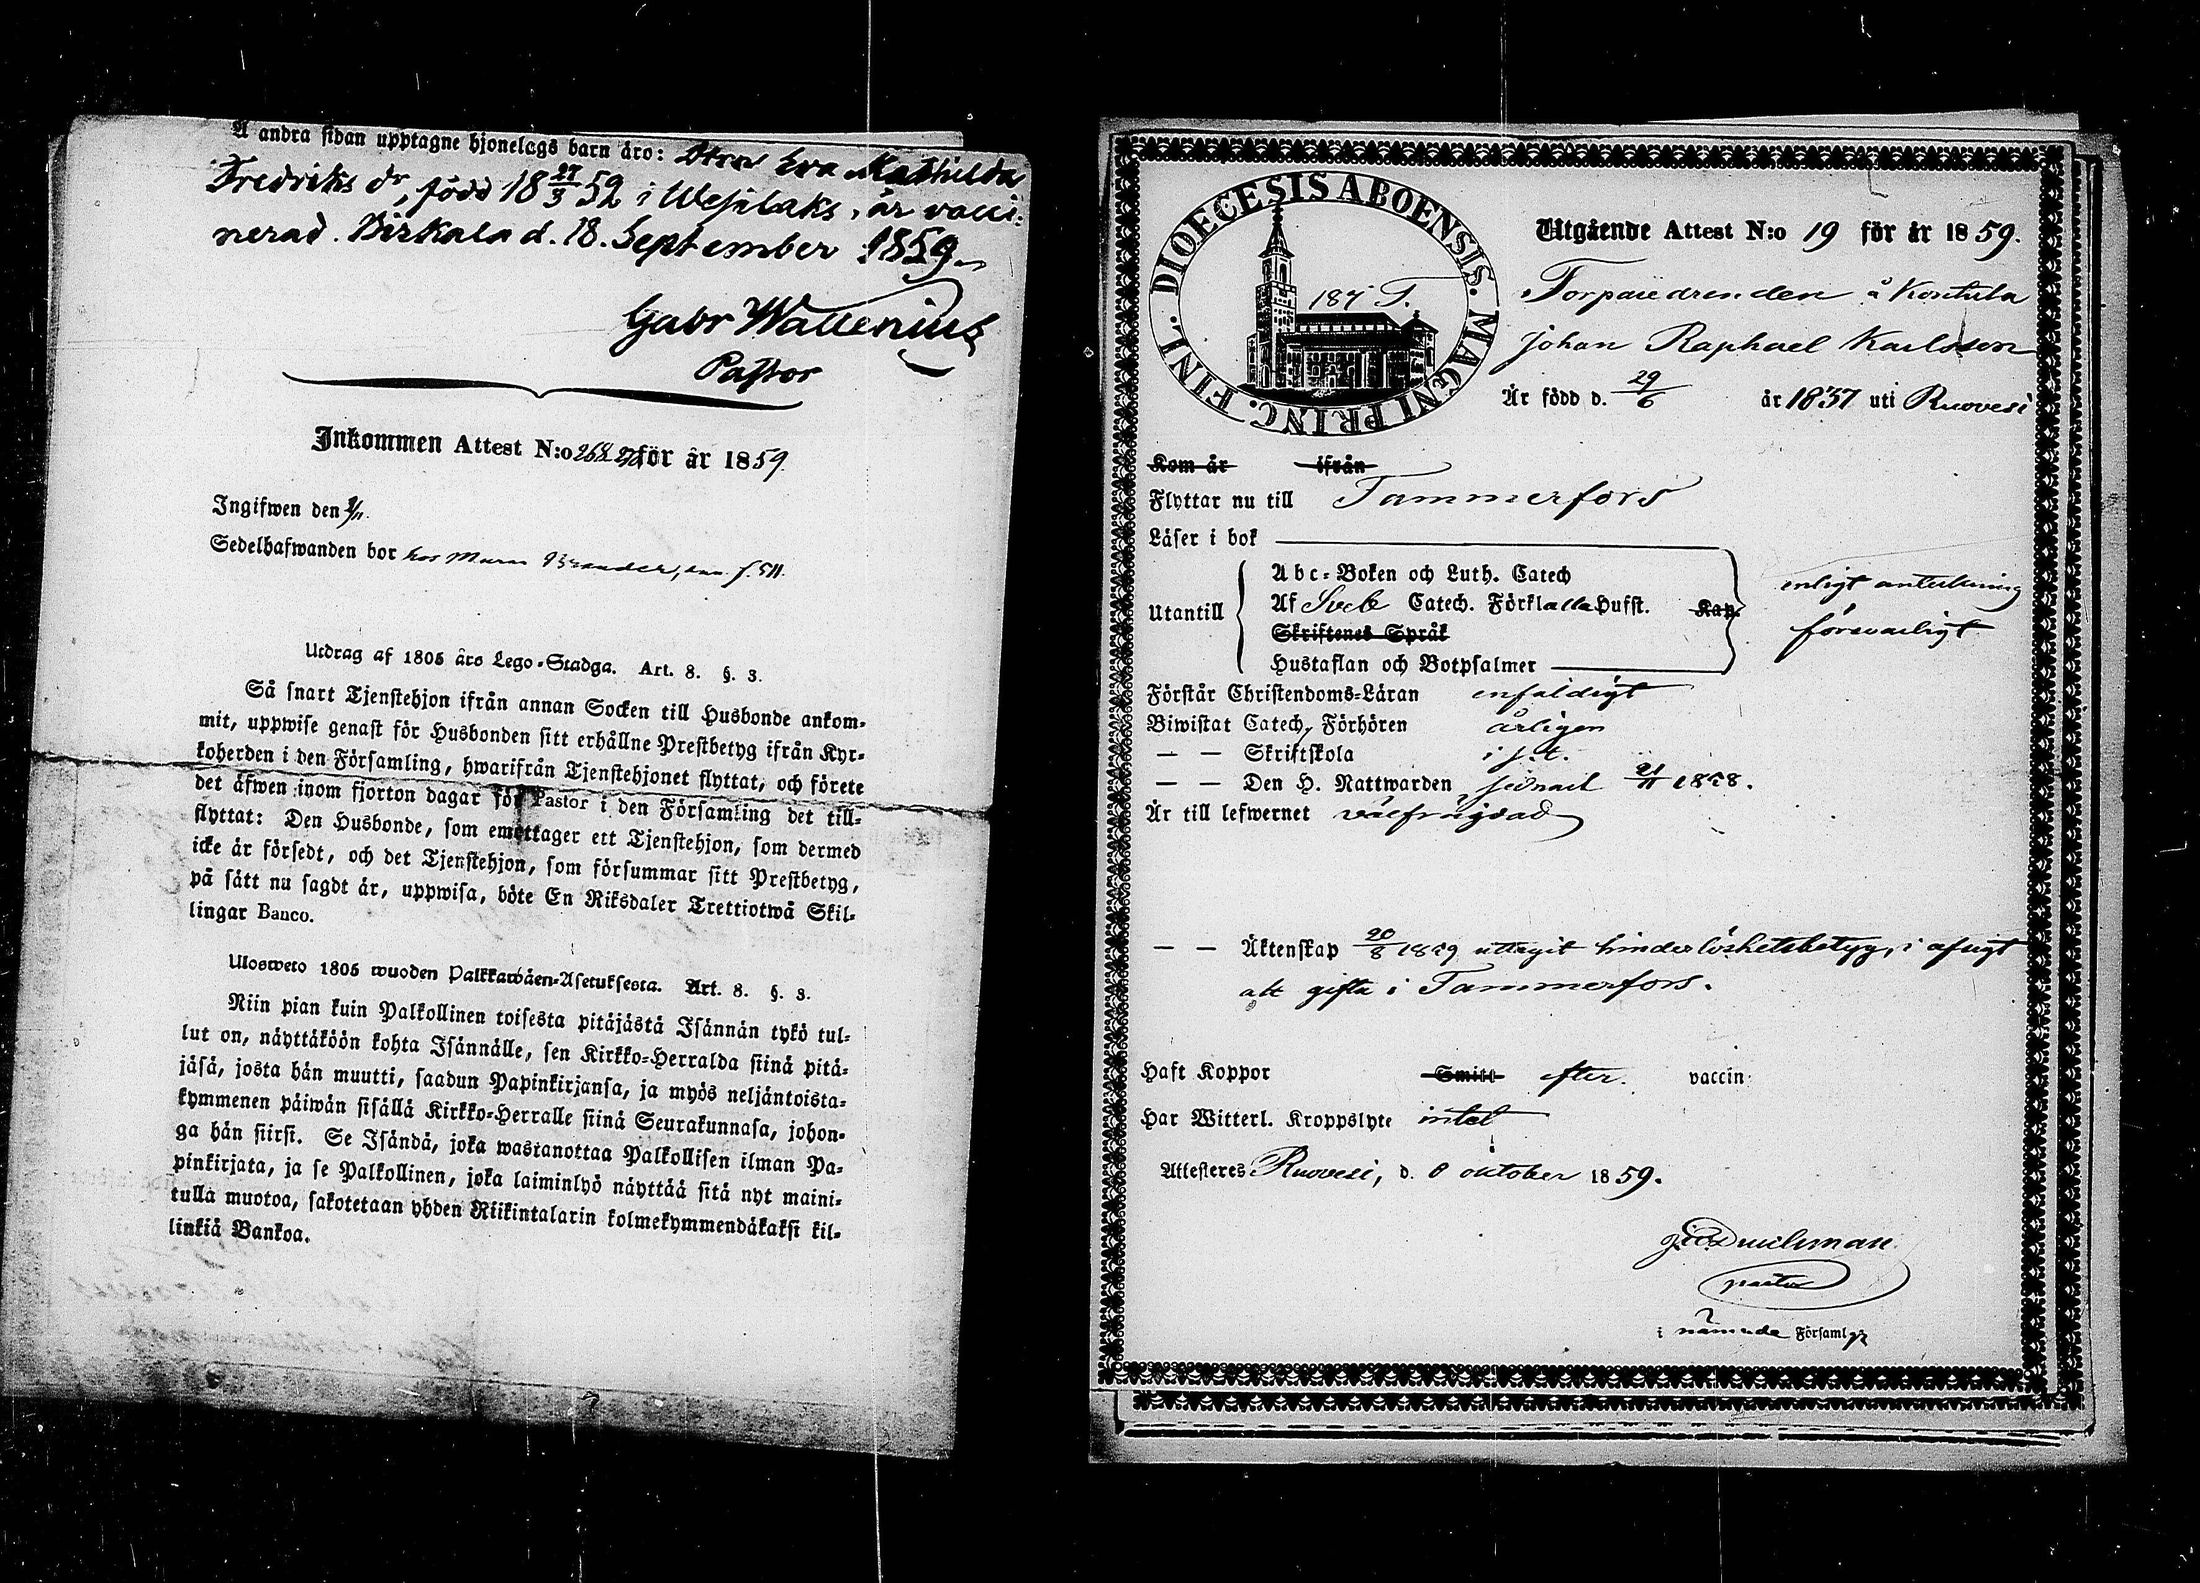 Å andra sidan upptagne hjonelags barn äro: Dtrn Eva Mathilda
Fredriks dr, född 18 27/3 52 i Wesilaks, är vacci-
nerad. Birkala d. 18. September 1859.
Gabr Wallenius
Pastor
Inkommen Attest N:o 268. 270 för år 1859.
Ingifwen den
Sedelhafwanden bor hos Murm Brander, f. 511.
Utdrag af 1805 års Lego-Stadga. Art. 8. §. 3.
Så snart Tjenstehjon ifrån annan Socken till Husbonde ankom-
mit, uppwise genast för Husbonden sitt erhållne Prestbetyg ifrån Kyr-
koherden i den Församling, hwarifrån Tjenstehjonet flyttat, och förete
det äfwen inom fjorton dagar för Pastor i den Församling det till-
flyttat: Den Husbonde, som emottager ett Tjenstehjon, som dermed
icke är försedt, och det Tjenstehjon, som försummar sitt Prestbetyg,
på sätt nu sagdt är, uppwisa, böte En Riksdaler Trettiotwå Skil-
lingar Banco.
Ulosweto 1805 wuoden Palkkawäen-Asetuksesta. Art. 8. §. 3.
Niin pian kuin Palkollinen toisesta pitäjästä Isännän tykö tul-
lut on, näyttäköön kohta Isännälle, sen Kirkko-Herralda siinä pitä-
jäsä, josta hän muutti, saadun Papinkirjansa, ja myös neljäntoista-
kymmenen päiwän sisällä Kirkko-Herralle siinä Seurakunnasa, johon-
ga hän siirsi. Se Isändä, joka wastanottaa Palkollisen ilman Pa-
pinkirjata, ja se Palkollinen, joka laiminlyö näyttää sitä nyt maini-
tulla muotoa, sakotetaan yhden Riikintalarin kolmekymmendäkaksi kil-
linkiä Bankoa.
DIOECESIS ABOENSIS. MAGNI PRINC. FINL.
187 T.
Utgående Attest N:o 19 för år 1859.
Torparedrengen å Kontula
Johan Raphael Karlsson
Är född d. 29/6 år 1837 uti Ruovesi
Kom år ifrån
Flyttar nu till Tammerfors
Läser i bok
Utantill
Abc-Boken och Luth. Catech
Af Sveb Catech. Förkl alla Hufst. Kap.
Skriftenes Språk
Hustaflan och Botpsalmer
enligt anteckning
försvarligt
Förstår Christendoms-Läran enfaldigt
Biwistat Catech. Förhören årligen
— — Skriftskola i s. t.
— — Den H. Nattwarden, sednast 21/11 1858.
Är till lefwernet välfrägdad
— — Äktenskap 20/8 1859 uttagit hinderlöshetsbetyg, i afsigt
att gifta i Tammerfors.
Haft Koppor Smitt efter. vaccin:
Har Witterl. Kroppslyte intet
Attesteres Ruovesi, d. 8 oktober 1859.
pastor
i nämnde Församl